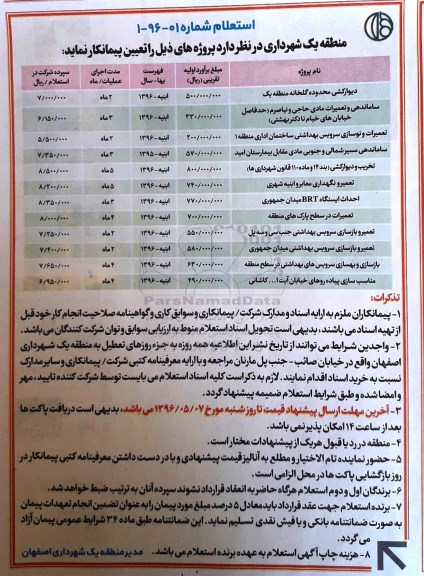 استعلام شماره ۰۱-۹۶-۱
منطقه یک شهرداری در نظر دارد پروژه های ذیل را تعیین پیمانکار نماید:
نام پروژه مبلغ برآورد اولیه تقریبی (ریال) فهرست بها - سال مدت اجرای عملیات / ماه سپرده شرکت در استعلام / ریال
دیوارکشی محدوده گلخانه منطقه یک ۵۰۰/۰۰۰/۰۰۰ ابنیه - ۱۳۹۶ ۲ ماه ۷/۰۰۰/۰۰۰
ساماندهی و تعمیرات مادی حاجی و نیاصرم (حدفاصل خیابان های خیام تا دکتر بهشتی) ۳۳۰/۰۰۰/۰۰۰ ابنیه - ۱۳۹۶ ۳ ماه ۶/۱۵۰/۰۰۰
تعمیرات و نوسازی سرویس بهداشتی ساختمان اداری منطقه ۱ ۲۰۰/۰۰۰/۰۰۰ ابنیه - ۱۳۹۶ ۲ ماه ۵/۵۰۰/۰۰۰
ساماندهی مسیر شمالی و جنوبی مادی مقابل بیمارستان امید ۵۷۰/۰۰۰/۰۰۰ ابنیه - ۱۳۹۵ ۳ ماه ۷/۳۵۰/۰۰۰
تخریب و دیوارکشی (بند ۱۴ و ماده ۱۱۰ قانون شهرداری ها) ۸۰۰/۰۰۰/۰۰۰ ابنیه - ۱۳۹۶ ۵ ماه ۸/۵۰۰/۰۰۰
تعمیر و نگهداری معابر و ابنیه شهری ۷۴۰/۰۰۰/۰۰۰ ابنیه - ۱۳۹۶ ۵ ماه ۸/۲۰۰/۰۰۰
احداث ایستگاه BRT میدان جمهوری ۷۷۰/۰۰۰/۰۰۰ ابنیه - ۱۳۹۶ ۳ ماه ۸/۳۵۰/۰۰۰
تعمیرات در سطح پارک های منطقه ۷۰۰/۰۰۰/۰۰۰ ابنیه - ۱۳۹۶ ۴ ماه ۸/۰۰۰/۰۰۰
تعمیر و بازسازی سرویس بهداشتی جنب سی و سه پل ۵۵۰/۰۰۰/۰۰۰ ابنیه - ۱۳۹۶ ۲ ماه ۷/۲۵۰/۰۰۰
تعمیر و بازسازی سرویس بهداشتی میدان جمهوری ۵۸۰/۰۰۰/۰۰۰ ابنیه - ۱۳۹۶ ۲ ماه ۷/۴۰۰/۰۰۰
بازسازی و بهسازی سرویس های بهداشتی در سطح منطقه ۶۳۰/۰۰۰/۰۰۰ ابنیه - ۱۳۹۶ ۴ ماه ۷/۶۵۰/۰۰۰
مناسب سازی پیاده روهای خیابان آیت ا... کاشانی ۴۹۰/۰۰۰/۰۰۰ ابنیه - ۱۳۹۶ ۴ ماه ۶/۹۵۰/۰۰۰
ParsNamadData
تذکرات:
۱- پیمانکاران ملزم به ارایه اسناد و مدارک شرکت / پیمانکاری و سوابق کاری و گواهینامه صلاحیت انجام کار خود قبل
از تهیه اسناد می باشند، بدیهی است تحویل اسناد استعلام منوط به ارزیابی سوابق و توان شرکت کنندگان می باشد.
۲- واجدین شرایط می توانند از تاریخ نشر این اطلاعیه همه روزه به جز روزهای تعطیل به منطقه یک شهرداری
اصفهان واقع در خیابان صائب - جنب پل مارنان مراجعه و با ارایه معرفینامه کتبی شرکت / پیمانکاری و سایر مدارک
نسبت به خرید اسناد اقدام نمایند. لازم به ذکر است کلیه اسناد استعلام می بایست توسط شرکت کننده تایید، مهر
و امضا شده و طبق شرایط استعلام ضمیمه پیشنهاد گردد.
۳- آخرین مهلت ارسال پیشنهاد قیمت تا روز شنبه مورخ ۱۳۹۶/۰۵/۰۷ می باشد، بدیهی است دریافت پاکت ها
بعد از ساعت ۱۴ امکان پذیر نمی باشد.
۴- منطقه در رد یا قبول هر یک از پیشنهادات مختار است.
۵- حضور نماینده تام الاختیار و مطلع به آنالیز قیمت پیشنهادی و با در دست داشتن معرفینامه کتبی پیمانکار در
روز بازگشایی پاکت ها در محل الزامی است.
۶- برندگان اول و دوم استعلام هرگاه حاضر به انعقاد قرارداد نشوند سپرده آنان به ترتیب ضبط خواهد شد.
۷- برنده استعلام جهت عقد قرارداد باید معادل ۵ درصد مبلغ مورد پیمان را به عنوان تضمین انجام تعهدات پیمان
به صورت ضمانتنامه بانکی و یا فیش نقدی تسلیم نماید. این ضمانتنامه طبق ماده ۳۴ شرایط عمومی پیمان آزاد
می گردد.
۸- هزینه چاپ آگهی استعلام به عهده برنده استعلام می باشد.
مدیر منطقه یک شهرداری اصفهان